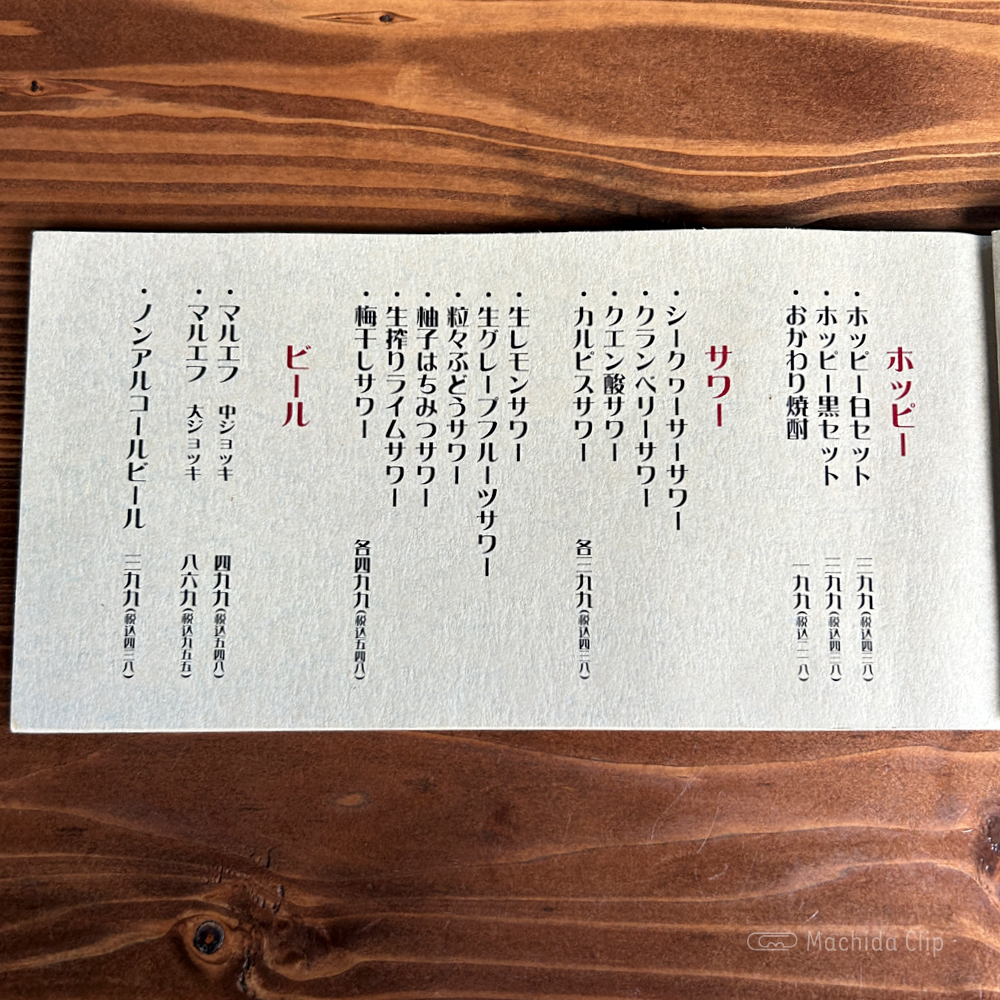 ホッピー
・ホッピー白セット 三九九(税込四三八)
・ホッピー黒セット 三九九(税込四三八)
・おかわり焼酎 一九九(税込二一八)
サワー
・シークワーサーサワー
・クランベリーサワー
・クエン酸サワー
・カルピスサワー 各三九九(税込四三八)
・生レモンサワー
・生グレープフルーツサワー
・粒々ぶどうサワー
・柚子はちみつサワー
・生搾りライムサワー
・梅干しサワー 各四九九(税込五四八)
ビール
・マルエフ 中ジョッキ 四九九(税込五四八)
・マルエフ 大ジョッキ 八六九(税込九五五)
・ノンアルコールビール 三九九(税込四三八)
Machida Clip